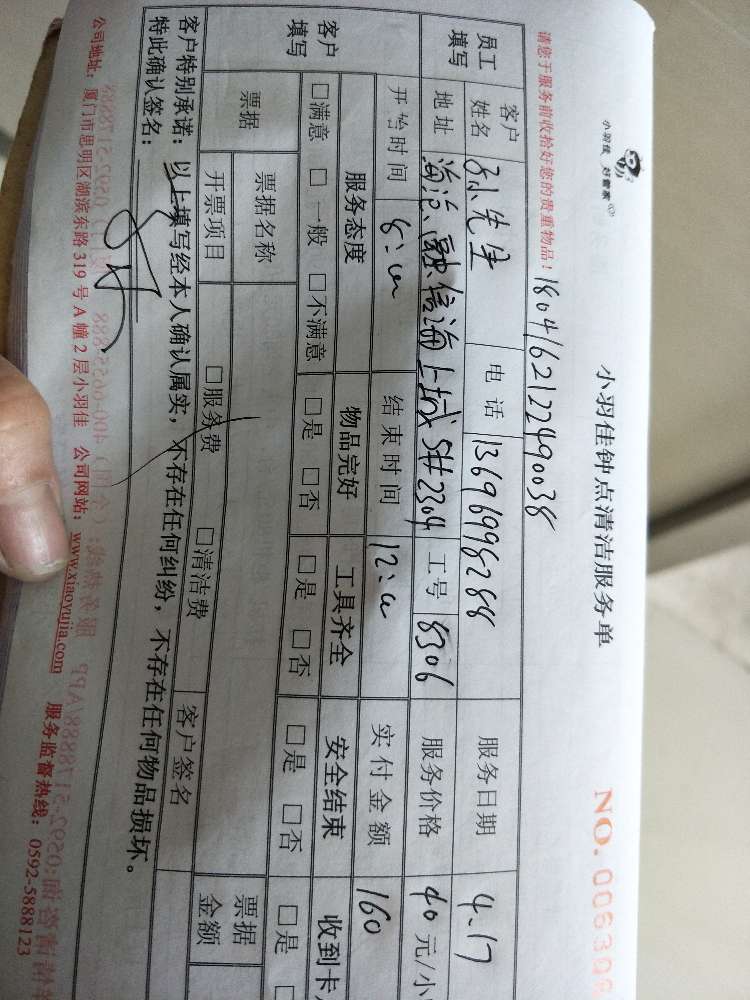 小羽佳 好管家
小羽佳钟点清洁服务单
NO. 006306
请您于服务前收拾好您的贵重物品！ 1804162122490038
员工填写 客户姓名 孙先生 电话 13696998288 服务日期 4.17
地址 海沧融信海上城5#2304 工号 8306 服务价格 40 元/小
开始时间 8:00 结束时间 12:00 实付金额 160
客户填写 服务态度 物品完好 工具齐全 安全结束 收到卡
□满意 □一般 □不满意 □是 □否 □是 □否 □是 □否 □是
票据 票据名称 票据金额
开票项目 □服务费 □清洁费 客户签名
客户特别承诺：以上填写经本人确认属实，不存在任何纠纷，不存在任何物品损坏。
特此确认签名：
公司地址：厦门市思明区湖滨东路 319 号 A 幢 2 层小羽佳 公司网站：www.xiaoyujia.com 服务监督热线：0592-5888123